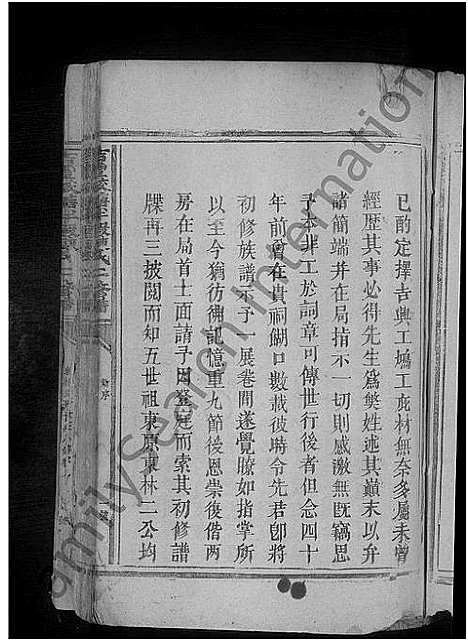 已酌定擇吉興工鳩工庀材無奈多屬未曾
經歷其事必得先生爲獘姓述其巔末以弁
諸簡端并在局指不一切則感激無旣竊思
予本非工於詞章可傳世行後者但念四十
年前曾在貴祠餬口數載彼時令先君卽將
初修族譜示予一展卷間遂覺瞭如指掌所
以至今猶彷彿記憶重九節後恩崇後偕兩
房在局首士面請予因登庭而索其初修譜
牒再三披閱而知五世祖東原東林二公均
序
FamilySearch International